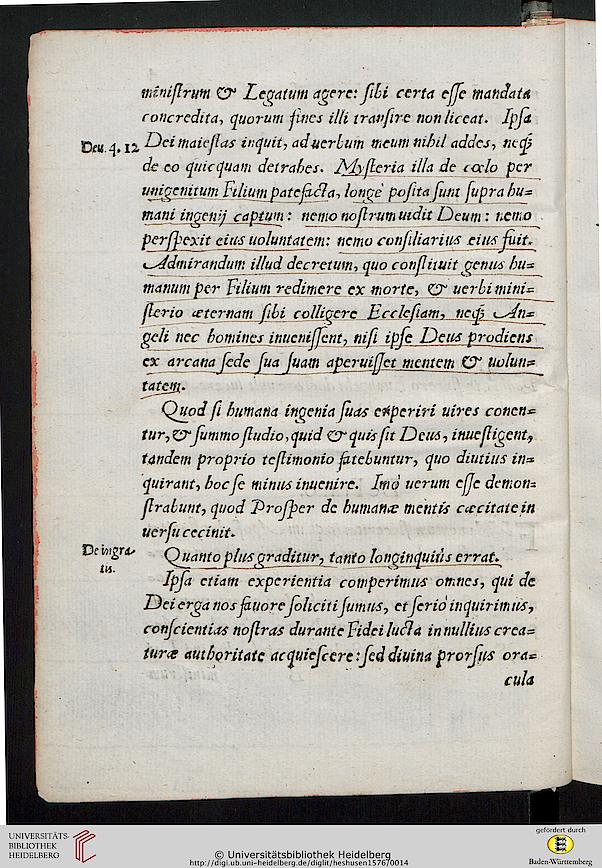 ministrum & Legatum agere: sibi certa esse mandata
concredita, quorum fines illi transire non liceat. Ipsa
Deu. 4. 12
Dei maiestas inquit, ad uerbum meum nihil addes, neq;
de eo quicquam detrahes. Mysteria illa de cœlo per
unigenitum Filium patefacta, longè posita sunt supra hu=
mani ingenij captum: nemo nostrum uidit Deum: nemo
perspexit eius uoluntatem: nemo consiliarius eius fuit.
Admirandum illud decretum, quo constituit genus hu=
manum per Filium redimere ex morte, & uerbi mini=
sterio æternam sibi colligere Ecclesiam, neq; An=
geli nec homines inuenissent, nisi ipse Deus prodiens
ex arcana sede sua suam aperuisset mentem & uolun=
tatem.
Quod si humana ingenia suas experiri uires conen=
tur, & summo studio, quid & quis sit Deus, inuestigent,
tandem proprio testimonio fatebuntur, quo diutius in=
quirant, hoc se minus inuenire. Imò uerum esse demon=
strabunt, quod Prosper de humanæ mentis cæcitate in
uersu cecinit.
De ingra-
tis.
Quanto plus graditur, tanto longinquiùs errat.
Ipsa etiam experientia comperimus omnes, qui de
Dei erga nos fauore soliciti sumus, et seriò inquirimus,
conscientias nostras durante Fidei lucta in nullius crea=
turæ authoritate acquiescere: sed diuina prorsus ora=
cula
UNIVERSITÄTS-
BIBLIOTHEK
HEIDELBERG
© Universitätsbibliothek Heidelberg
http://digi.ub.uni-heidelberg.de/diglit/heshusen1576/0014
gefördert durch
Baden-Württemberg